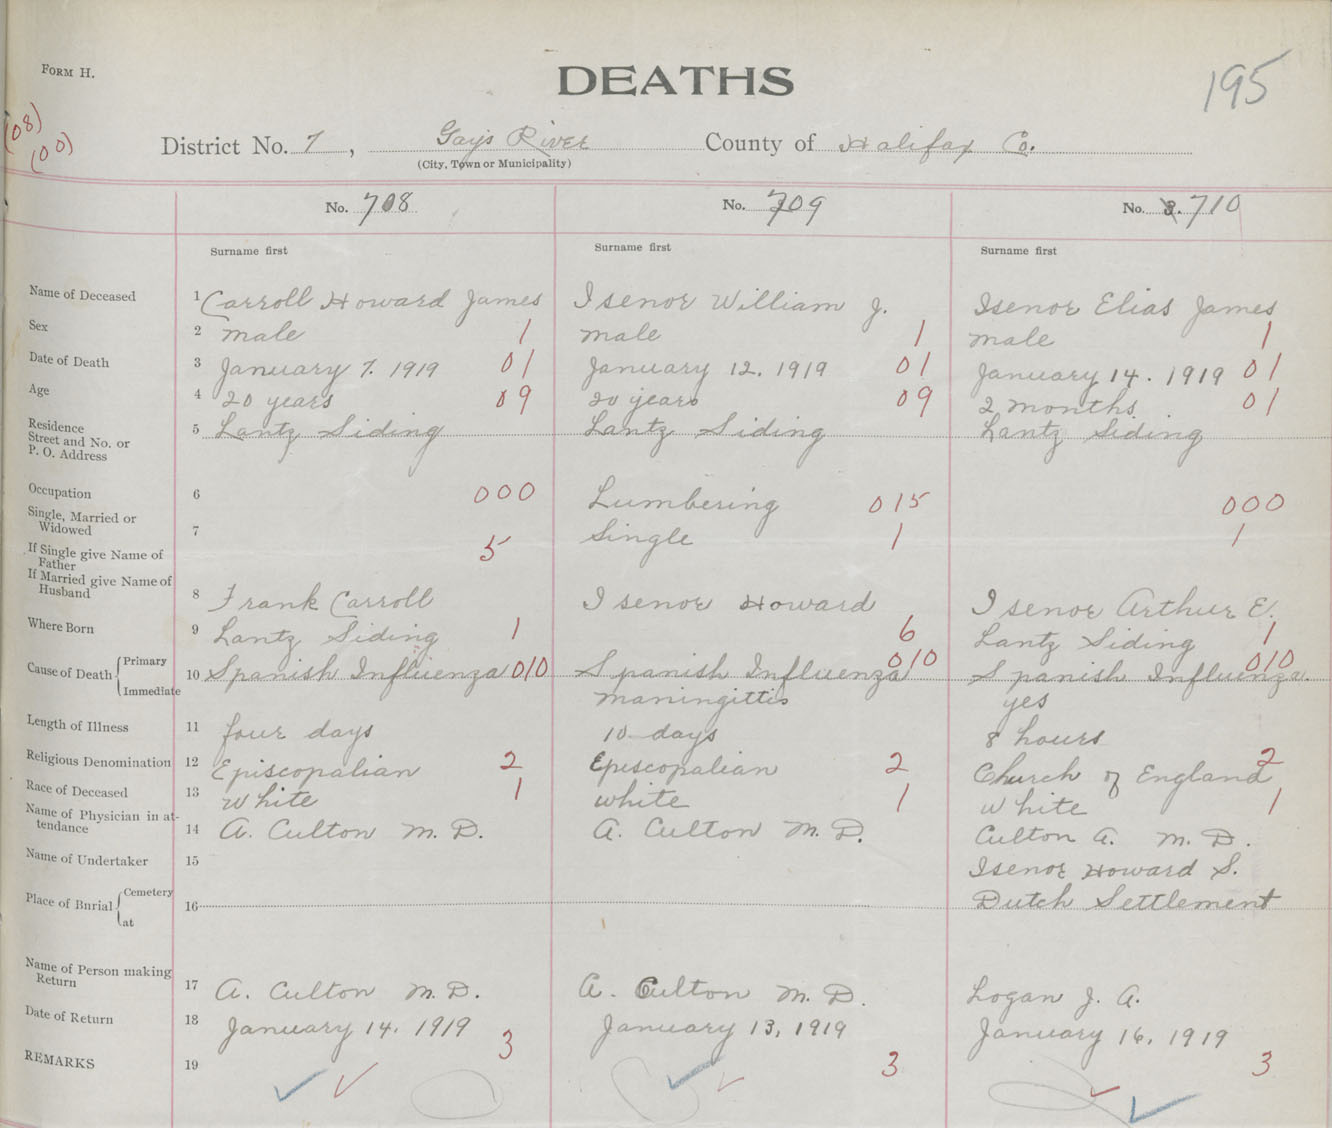 FORM H.
DEATHS
195
(08)
(00)
District No. 7, Gays River County of Halifax Co.
(City, Town or Municipality)
No. 708 No. 709 No. 3. 710
Surname first Surname first Surname first
Name of Deceased 1 Carroll Howard James Isenor William J. Isenor Elias James
Sex 2 male 1 male 1 male 1
Date of Death 3 January 7. 1919 01 January 12. 1919 01 January 14. 1919 01
Age 4 20 years 09 20 years 09 2 months. 01
Residence
Street and No. or
P. O. Address 5 Lantz Siding Lantz Siding Lantz Siding
Occupation 6 000 Lumbering 015 000
Single, Married or
Widowed 7 5 Single 1 1
If Single give Name of
Father
If Married give Name of
Husband 8 Frank Carroll Isenor Howard Isenor Arthur E.
Where Born 9 Lantz Siding 1 6 Lantz Siding 1
Cause of Death Primary 10 Spanish Influenza 010 Spanish Influenza 010 Spanish Influenza. 010
Immediate maningittis yes
Length of Illness 11 four days 10 days 8 hours
Religious Denomination 12 Episcopalian 2 Episcopalian 2 Church of England 2
Race of Deceased 13 White 1 white 1 white 1
Name of Physician in at-
tendance 14 A. Culton M. D. A. Culton M. D. Culton A. M. D.
Name of Undertaker 15 Isenor Howard S.
Place of Burial Cemetery
at 16 Dutch Settlement
Name of Person making
Return 17 A. Culton M. D. A. Culton M. D. Logan J. A.
Date of Return 18 January 14. 1919 January 13, 1919 January 16, 1919
REMARKS 19 3 3 3